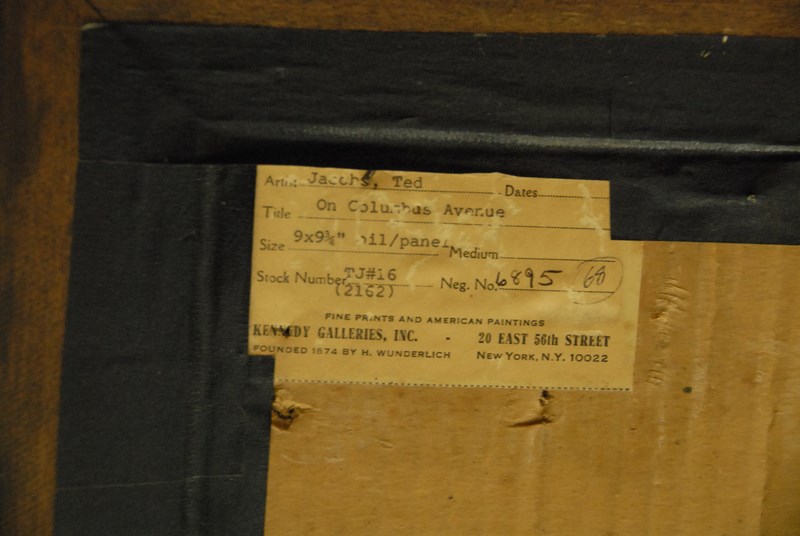 Artist Jacobs, Ted Dates
Title On Columbus Avenue
Size 9x9¾" oil/panel Medium
Stock Number TJ#16 Neg. No. 6895 68
(2162)
FINE PRINTS AND AMERICAN PAINTINGS
KENNEDY GALLERIES, INC. - 20 EAST 56th STREET
FOUNDED 1874 BY H. WUNDERLICH NEW YORK, N.Y. 10022